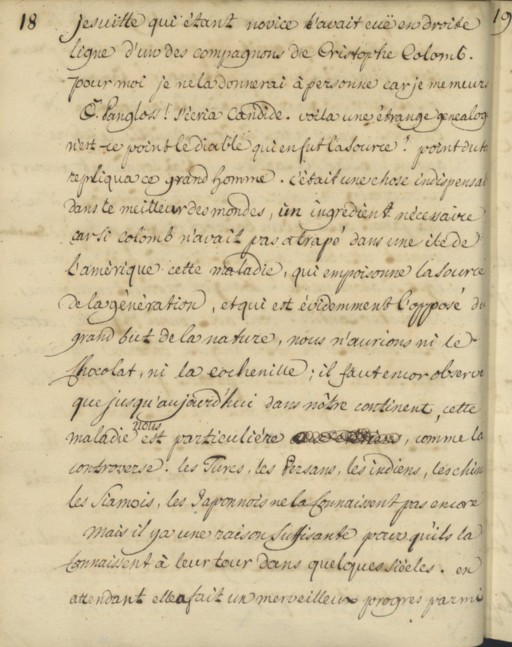 18
jesuitte qui étant novice l'avait euë en droite
ligne d'un des compagnons de Cristophe Colomb.
pour moi je ne la donnerai à personne car je me meurs
Ô Pangloss! s'écria Candide. voila une étrange genealog
n'est-ce point le diable qui en fut la source? point du to
repliqua ce grand homme. c'était une chose indispensa
dans le meilleur des mondes, un ingrédient nécessaire
car si colomb n'avait pas atrapé dans une ile de
l'amérique cette maladie, qui empoisonne la source
de la génération, et qui est évidemment l'opposé du
grand but de la nature, nous n'aurions ni le
Chocolat, ni la cochenille; il faut encor observe
que jusqu'aujourd'hui dans nôtre continent, cette
maladie nous est particulière, comme la
controverse. les Turcs, les Persans, les indiens, les chin
les Siamois, les Japonnois ne la Connaissent pas encore
Mais il y a une raison suffisante pour qu'ils la
Connaissent à leur tour dans quelques siècles. en
attendant elle a fait un merveilleux progres parmi
19